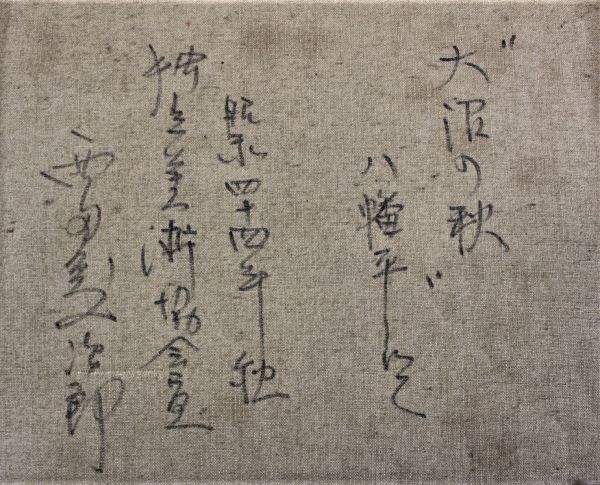 "大沼の秋
八幡平"にて
昭和四十四年秋
独立美術協会員
西田 治郎